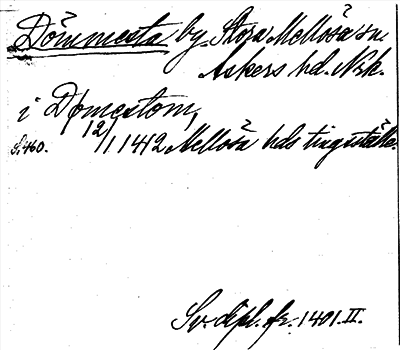 Dömmesta by. Stora Mellösa sn.
Askers hd. Nrk.
i Dømestom,
S. 460. 12/1 1412 Mellösa hds tingställe.
Sv. dipl. fr. 1401. II.